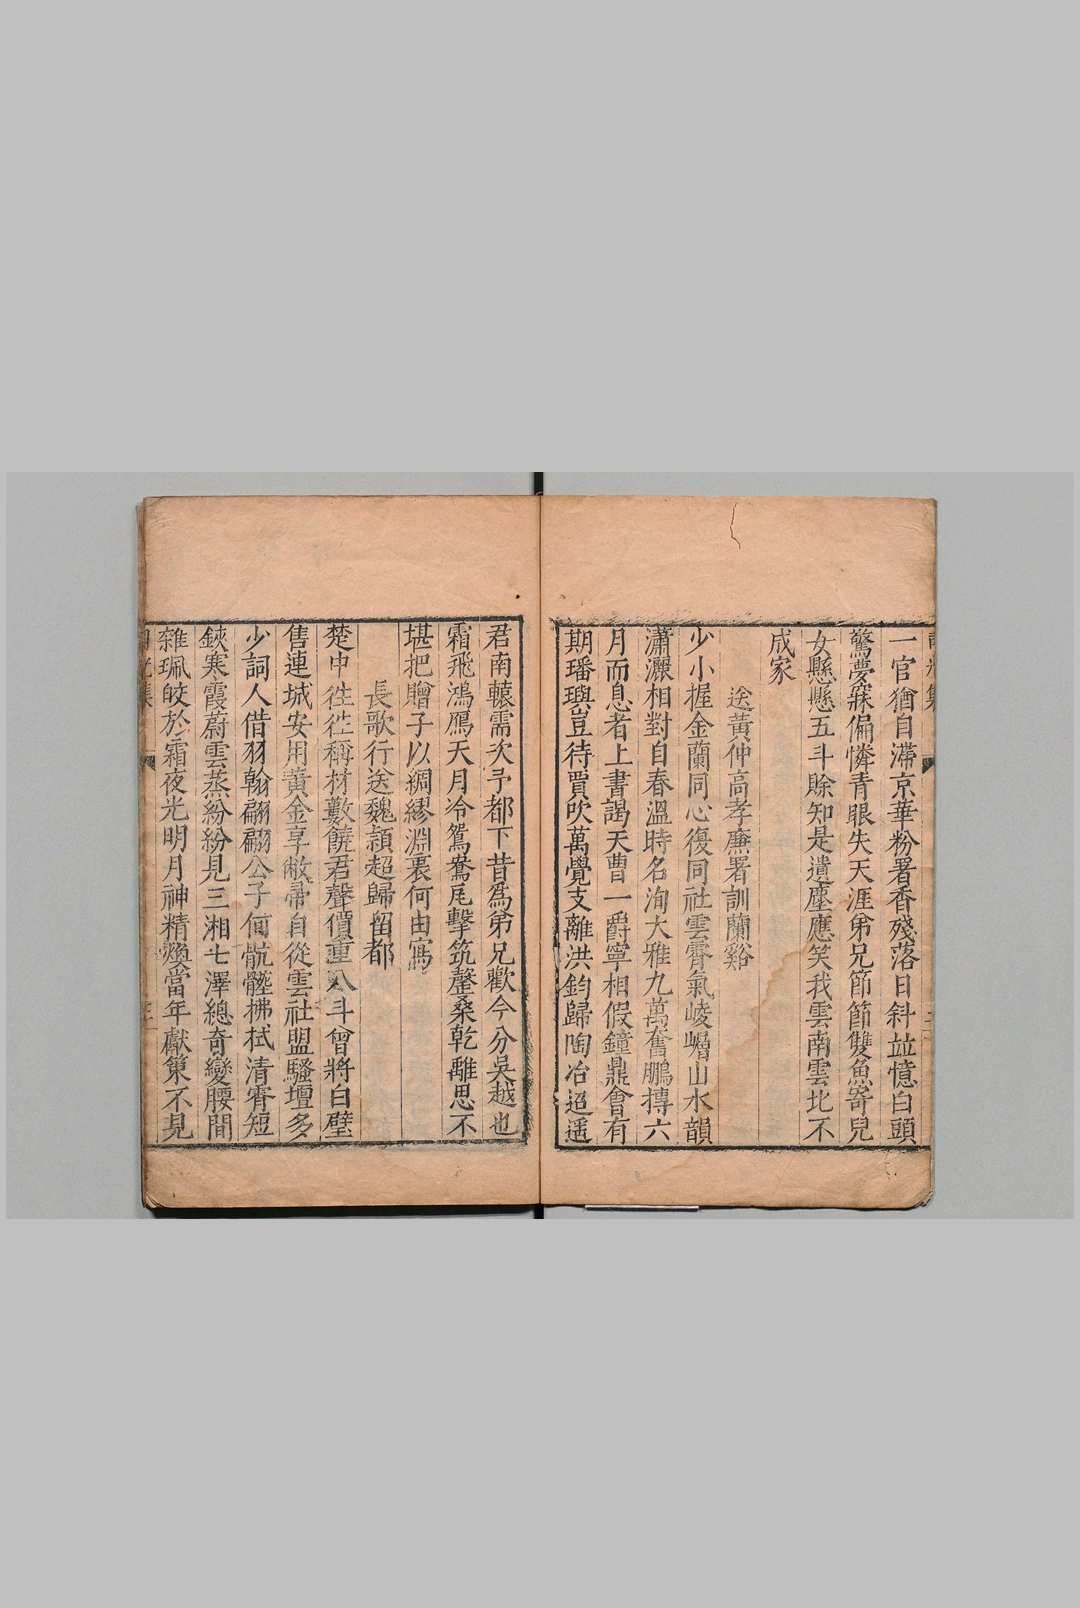 一官猶自滯京華粉署香殘落日斜並憶白頭
驚夢寐偏憐青眼失天涯弟兄節節雙魚寄兒
女懸懸五斗賒知是遺塵應笑我雲南雲北不
成家
送黃仲高孝廉署訓蘭谿
少小握金蘭同心復同社雲霄氣崚嶒山水韻
瀟灑相對自春溫時名洵大雅九萬奮鵬摶六
月而息者上書謁天曹一爵寧相假鐘鼎會有
期璠璵豈待賈吹萬覺支離洪鈞歸陶冶迢遥
君南轅需次予都下昔爲弟兄歡今分吳越也
霜飛鴻鴈天月冷鴛鴦瓦擊筑蓋桑乾離思不
堪把贈子以綢繆淵裏何由寫
長歌行送魏頴超歸留都
楚中徃徃稱材藪饒君聲價重八斗曾將白璧
售連城安用黃金享敝帚自從雲社盟騷壇多
少詞人借羽翰翩翩公子何骯髒拂拭清霄短
鋏寒霞蔚雲蒸紛紛見三湘七澤總奇變腰間
雜珮皎於霜夜光明月神精煥當年獻策不見